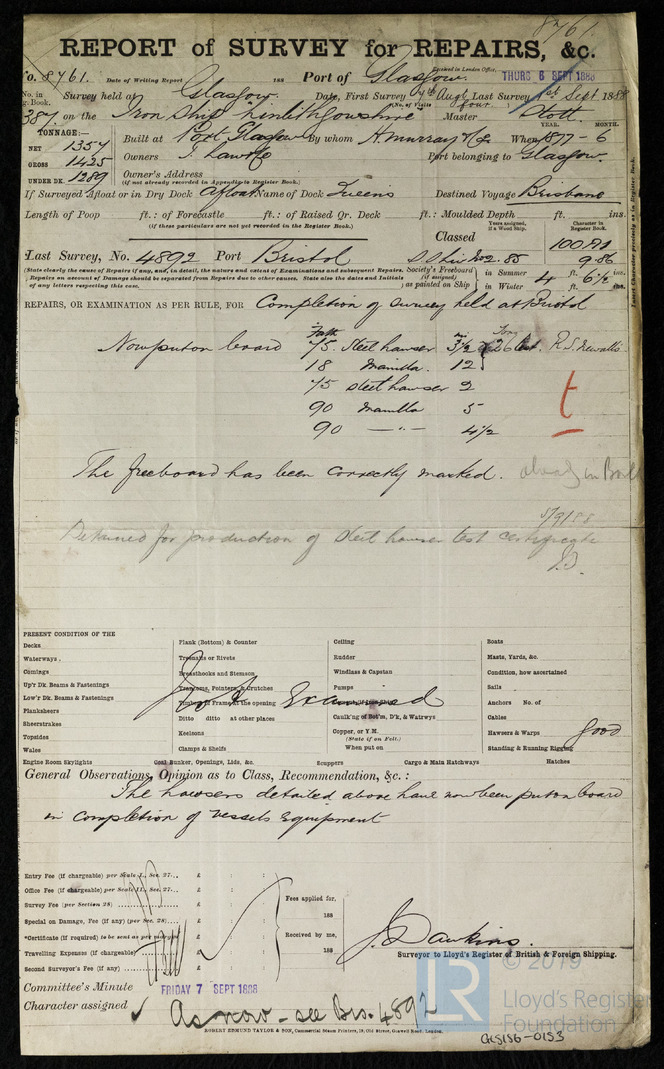 8761
REPORT of SURVEY for REPAIRS, &c.
No. 8761. Date of Writing Report 188 Port of Glasgow. Received in London Office, THURS 6 SEPT 1888
No. in Reg. Book. Survey held at Glasgow. Date, First Survey 7th Augt Last Survey 1st Sept 1888
387 on the Iron Ship "Linlithgowshire" No. of Visits four Master
TONNAGE:— YEAR. MONTH.
NET 1357 Built at Port Glasgow By whom H. Murray & Co. When 1877 - 6
GROSS 1425 Owners T. Law & Co Port belonging to Glasgow.
UNDER DK. 1289 Owner's Address
(if not already recorded in Appendix to Register Book.)
If Surveyed Afloat or in Dry Dock Afloat Name of Dock Queens Destined Voyage Brisbane
Length of Poop ft.: of Forecastle ft.: of Raised Qr. Deck ft.: Moulded Depth ft. ins.
(if these particulars are not yet recorded in the Register Book.)
Classed Years assigned, if a Wood Ship. Character in Register Book.
100 A1
Last Survey, No. 4892 Port Bristol 9.86
(State clearly the cause of Repairs if any, and, in detail, the nature and extent of Examinations and subsequent Repairs.
Repairs on account of Damage should be separated from Repairs due to other causes. State also the dates and Initials
of any letters respecting this case.
Society's Freeboard (if assigned) as painted on Ship in Summer 4 ft. 6½ ins.
in Winter ft. ins.
Insert Character precisely as in Register Book.
REPAIRS, OR EXAMINATION AS PER RULE, FOR Completion of survey held at Bristol
Fath ins Tons
Now put on board 75 Steel hawser 3½ 26 R. S. Newalls
18 Manilla 12
75 Steel hawser 2
90 Manilla 5
90 — " — 4½
t
The freeboard has been correctly marked. already in Book
5/9/88
Detained for production of steel hawser test certificate
PRESENT CONDITION OF THE
Decks
Waterways
Comings
Up'r Dk. Beams & Fastenings
Low'r Dk. Beams & Fastenings
Planksheers
Sheerstrakes
Topsides
Wales
Engine Room Skylights
Plank (Bottom) & Counter
Treenails or Rivets
Breasthooks and Stemson
Transoms, Pointers, & Crutches
Timbers of Frame at the opening
Ditto ditto at other places
Keelsons
Clamps & Shelfs
Coal Bunker, Openings, Lids, &c.
Not Examined
Ceiling
Rudder
Windlass & Capstan
Pumps
Caulk'ng of Bot'm, D'k, & Watrwys
Copper, or Y.M.
(State if on Felt.)
When put on
Scuppers
Cargo & Main Hatchways
Boats
Masts, Yards, &c.
Condition, how ascertained
Sails
Anchors No. of
Cables
Hawsers & Warps good
Standing & Running Rigging
Hatches
General Observations, Opinion as to Class, Recommendation, &c.:
The hawsers detailed above have now been put on board
in completion of vessels Equipment
Entry Fee (if chargeable) per Scale I., Sec. 27... £ : :
Office Fee (if chargeable) per Scale II., Sec. 27... £ : :
Survey Fee (per Section 28) £ : :
Special on Damage, Fee (if any) (per Sec. 28)... £ : :
*Certificate (if required) to be sent as per margin £ : :
Travelling Expenses (if chargeable) £ : :
Second Surveyor's Fee (if any) £ : :
Fees applied for,
188
Received by me,
188
J. Dawkins.
Surveyor to Lloyd's Register of British & Foreign Shipping.
Committee's Minute FRIDAY 7 SEPT 1888
Character assigned As now - see Brs. 4892
ROBERT EDMUND TAYLOR & SON, Commercial Steam Printers, 19, Old Street, Goswell Road, London.
LR
© 2019
Lloyd's Register
Foundation
GLS156-0153